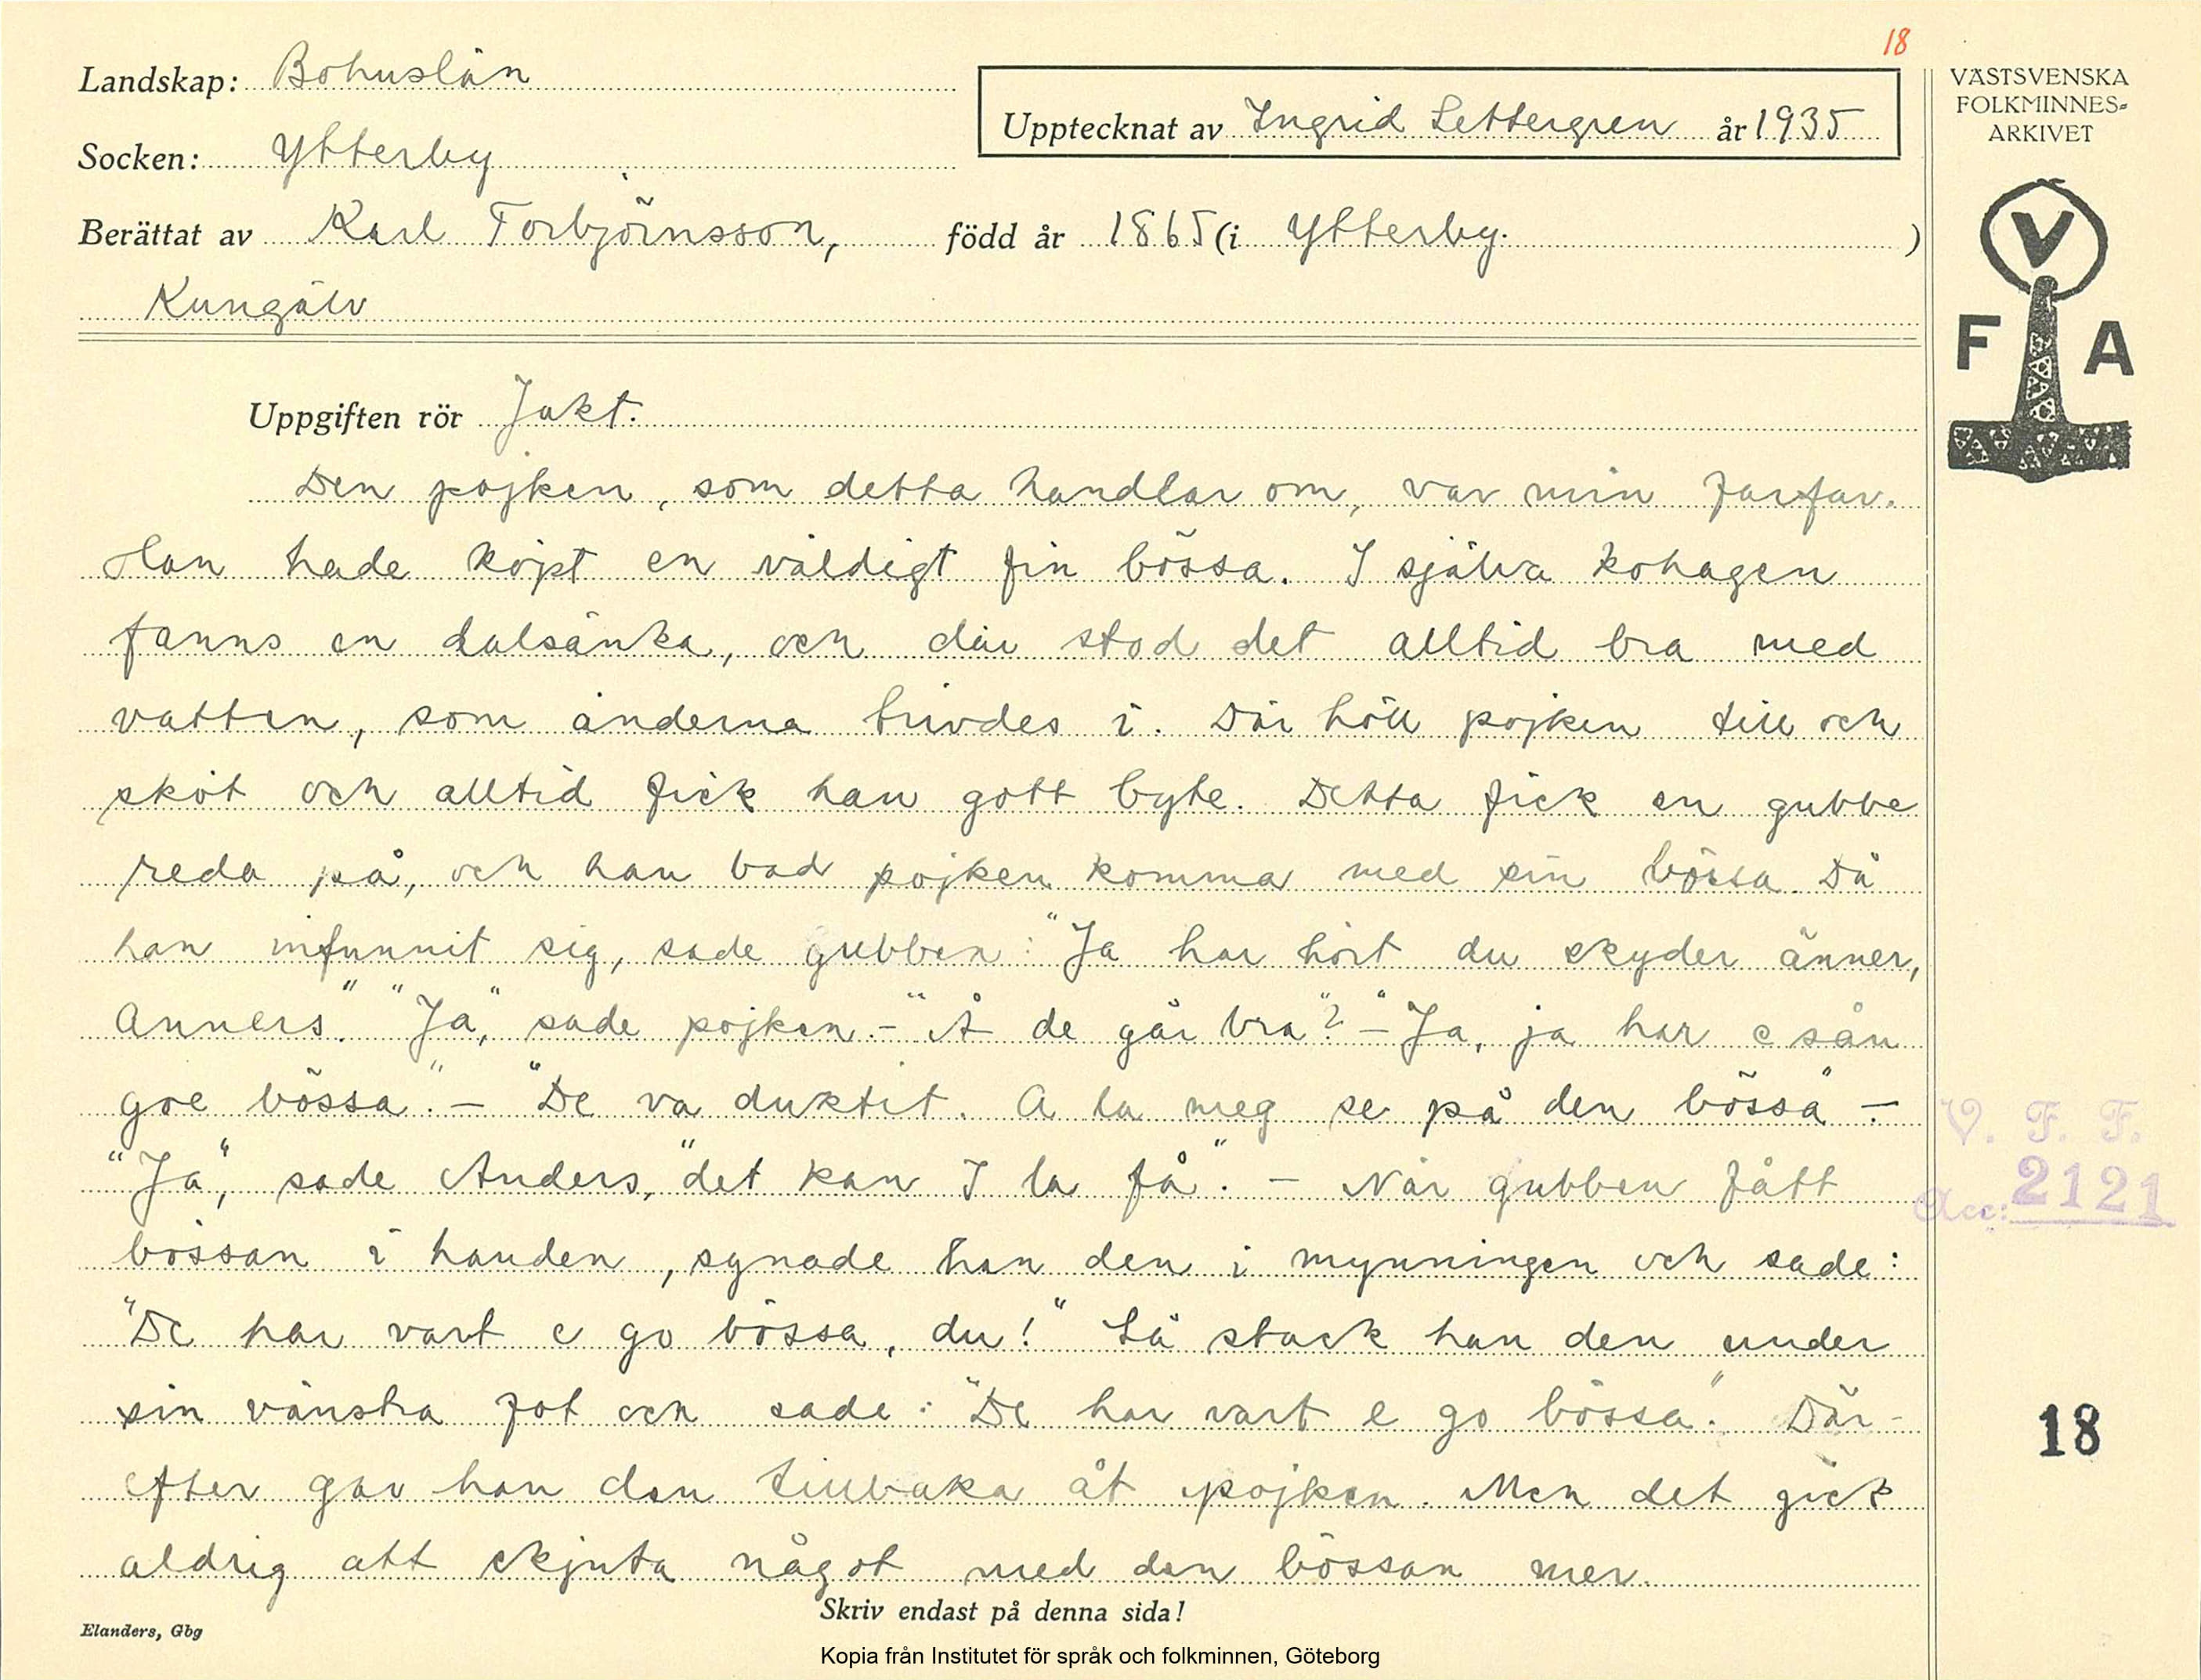 18
Landskap: Bohuslän
Upptecknat av Ingrid Settergren år 1935
Socken: Ytterby
Berättat av Karl Torbjörnsson, född år 1865 (i Ytterby. )
Kungälv
VÄSTSVENSKA
FOLKMINNES-
ARKIVET
V
F A
Uppgiften rör Jakt.
Den pojken, som detta handlar om, var min farfar.
Han hade köpt en väldigt fin bössa. I själva kohagen
fanns en dalsänka, och där stod det alltid bra med
vatten, som änderna trivdes i. Där höll pojken till och
sköt och alltid fick han gott byte. Detta fick en gubbe
reda på, och han bad pojken komma med sin bössa. Då
han infunnit sig, sade gubben: "Ja har hört du skyder änner,
Anners." "Ja", sade pojken. - "Å de går bra"? - "Ja, ja har e sån
goe bössa". - "De va duktit. A la meg se på den bössa" -
"Ja", sade Anders, "det kan I la få". - När gubben fått
bössan i handen, synade han den i mynningen och sade:
"De har vart e go bössa, du!" Så stack han den under
sin vänstra fot och sade: "De har vart e go bössa". Där-
efter gav han den tillbaka åt pojken. Men det gick
aldrig att skjuta något med den bössan mer.
V. F. F.
Acc: 2121
18
Skriv endast på denna sida!
Elanders, Gbg
Kopia från Institutet för språk och folkminnen, Göteborg